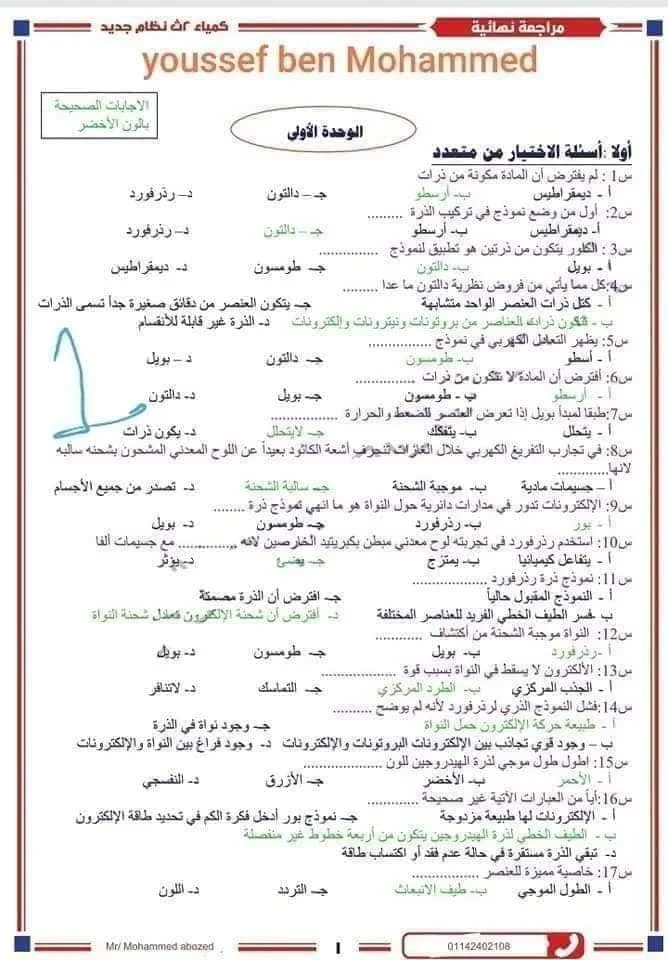 مراجعة نهائية
كمياء ٢ث نظام جديد
youssef ben Mohammed
الاجابات الصحيحة
بالون الأخضر
الوحدة الأولى
أولا :أسئلة الاختيار من متعدد
س1 : لم يفترض أن المادة مكونة من ذرات
أ - ديمقراطيس ب- أرسطو جـ – دالتون د– رذرفورد
س2: أول من وضع نموذج في تركيب الذرة .........
أ- ديمقراطيس ب- أرسطو جـ – دالتون د– رذرفورد
س3 : الكلور يتكون من ذرتين هو تطبيق لنموذج ...............
أ - بويل ب- دالتون جـ- طومسون د- ديمقراطيس
س4:كل مما يأتي من فروض نظرية دالتون ما عدا .........
أ - كتل ذرات العنصر الواحد متشابهة جـ- يتكون العنصر من دقائق صغيرة جداً تسمى الذرات
ب - تتكون ذرات العناصر من بروتونات ونيترونات وإلكترونات د- الذرة غير قابلة للأنقسام
س5: يظهر التعادل الكهربي في نموذج ...............
أ - أسطو ب- طومسون جـ- دالتون د – بويل
س6: أفترض أن المادة لا تتكون من ذرات ...............
أ - أرسطو ب - طومسون جـ- بويل د- دالتون
س7:طبقا لمبدأ بويل إذا تعرض العنصر للضغط والحرارة ...............
أ - يتحلل ب- يتفكك جـ- لايتحلل د- يكون ذرات
س8: في تجارب التفريغ الكهربي خلال الغازات تنحرف أشعة الكاثود بعيداً عن اللوح المعدني المشحون بشحنه سالبه
لانها.............
أ – جسيمات مادية ب- موجبة الشحنة جـ- سالبة الشحنة د- تصدر من جميع الأجسام
س9: الإلكترونات تدور في مدارات دائرية حول النواة هو ما انهي نموذج ذرة ........
أ - بور ب- رذرفورد جـ- طومسون د- بويل
س10: أستخدم رذرفورد في تجربته لوح معدني مبطن بكبريتيد الخارصين لانه ............... مع جسيمات ألفا
أ - يتفاعل كيميائيا ب- يمتزج جـ- يضئ د- يؤثر
س11: نموذج ذرة رذرفورد ...............
أ - النموذج المقبول حالياً جـ- افترض أن الذرة مصمتة
ب - فسر الطيف الخطي الفريد للعناصر المختلفة د- أفترض أن شحنة الإلكترون تعادل شحنة النواة
س12: النواة موجبة الشحنة من أكتشاف ............
أ -رذرفورد ب- بويل جـ- طومسون د- بويل
س13: الألكترون لا يسقط في النواة بسبب قوة ...............
أ - الجذب المركزي ب- الطرد المركزي جـ- التماسك د- لاتنافر
س14:فشل النموذج الذري لرذرفورد لأنه لم يوضح ..........
أ - طبيعة حركة الإلكترون حمل النواة جـ- وجود نواة في الذرة
ب – وجود قوي تجاذب بين الإلكترونات البروتونات والإلكترونات د- وجود فراغ بين النواة والإلكترونات
س15: اطول طول موجي لذرة الهيدروجين للون ...............
أ - الأحمر ب- الأخضر جـ- الأزرق د- النفسجي
س16:أياً من العبارات الآتية غير صحيحة ............
أ - الإلكترونات لها طبيعة مزدوجة جـ- نموذج بور أدخل فكرة الكم في تحديد طاقة الإلكترون
ب - الطيف الخطي لذرة الهيدروجين يتكون من أربعة خطوط غير منفصلة
د- تبقي الذرة مستقرة في حالة عدم فقد أو اكتساب طاقة
س17: خاصية مميزة للعنصر ...............
أ - الطول الموجي ب- طيف الانبعاث جـ- التردد د- اللون
Mr/ Mohammed abozed
1
01142402108